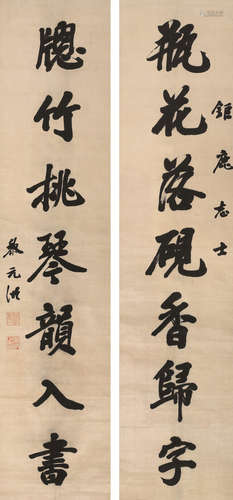 鉅鹿志士
瓶花落硯香歸字
牕竹挑琴韻入書
黎元洪